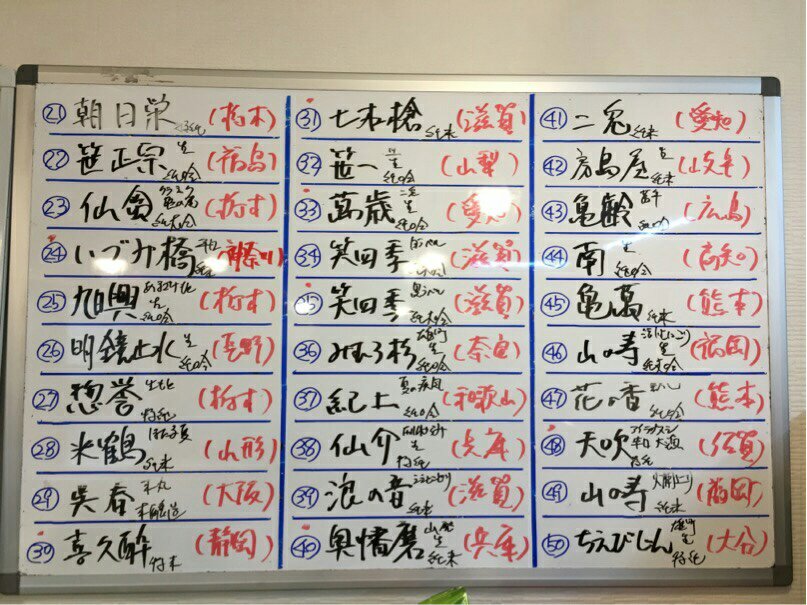 ㉑ 朝日栄 (栃木)
㉒ 笹正宗 生 純吟 (福島)
㉓ 仙禽 亀の尾 純大吟 (栃木)
㉔ いづみ橋 (神奈川)
㉕ 旭興 生 純吟 (栃木)
㉖ 明鏡止水 生 純吟 (長野)
㉗ 惣誉 生もと 特純 (栃木)
㉘ 米鶴 純米 (山形)
㉙ 呉春 本丸 本醸造 (大阪)
㉚ 喜久酔 特本 (静岡)
㉛ 七本槍 純米 (滋賀)
㉜ 笹一 生 純吟 (山梨)
㉝ 萬歳 生 純吟 (愛知)
㉞ 笑四季 (滋賀)
㉟ 笑四季 純大吟 (滋賀)
㊱ みむろ杉 雄町 生 純吟 (奈良)
㊲ 紀土 夏の疾風 純吟 (和歌山)
㊳ 仙介 生 特純 (兵庫)
㊴ 浪の音 純米 (滋賀)
㊵ 奥播磨 山廃 生 純米 (兵庫)
㊶ 二兎 純米 (愛知)
㊷ 房島屋 生 純米 (岐阜)
㊸ 亀齢 純吟 (広島)
㊹ 南 生 純吟 (高知)
㊺ 亀萬 純米 (熊本)
㊻ 山の寿 生 純大吟 (福岡)
㊼ 花の香 純大吟 (熊本)
㊽ 天吹 特純 (佐賀)
㊾ 山の寿 火入れ 純米 (福岡)
㊿ ちえびじん 雄町 生 特純 (大分)